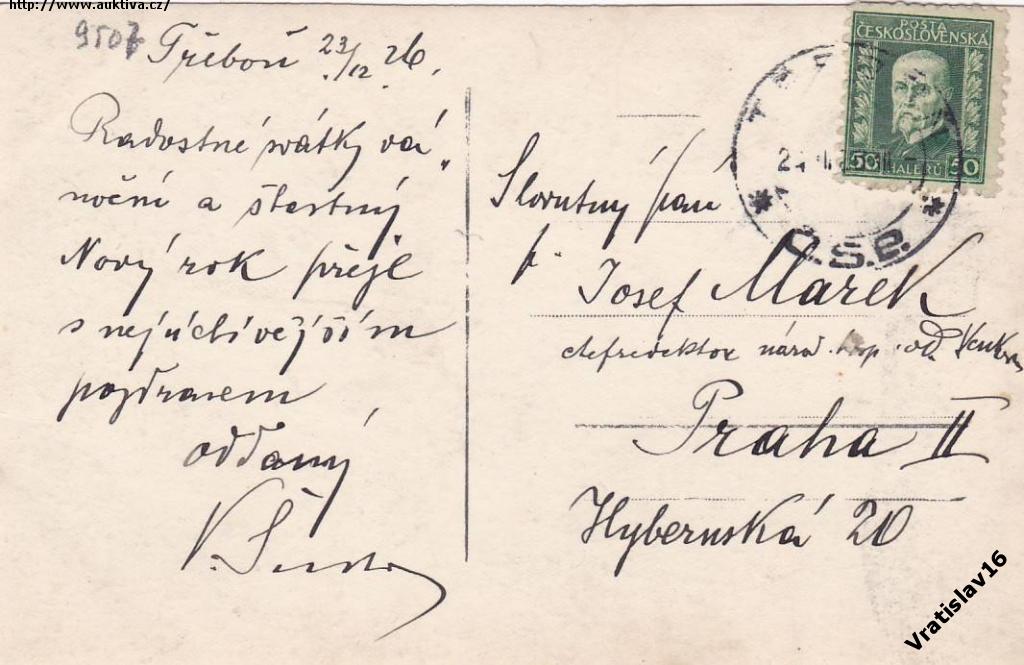 http://www.auktiva.cz/
9507
Třeboň 23/12 26.
Radostné svátky vá„
noční a šťastný
Nový rok přeje
s nejúctivějším
pozdravem
oddaný
V.
POSTA
ČESKOSLOVENSKÁ
50 HALÉŘŮ 50
Č.S.P.
Slovutný pán
p. Josef Marek
šefredaktor národ. od. Venkova
Praha II
Hybernská 20
Vratislav16